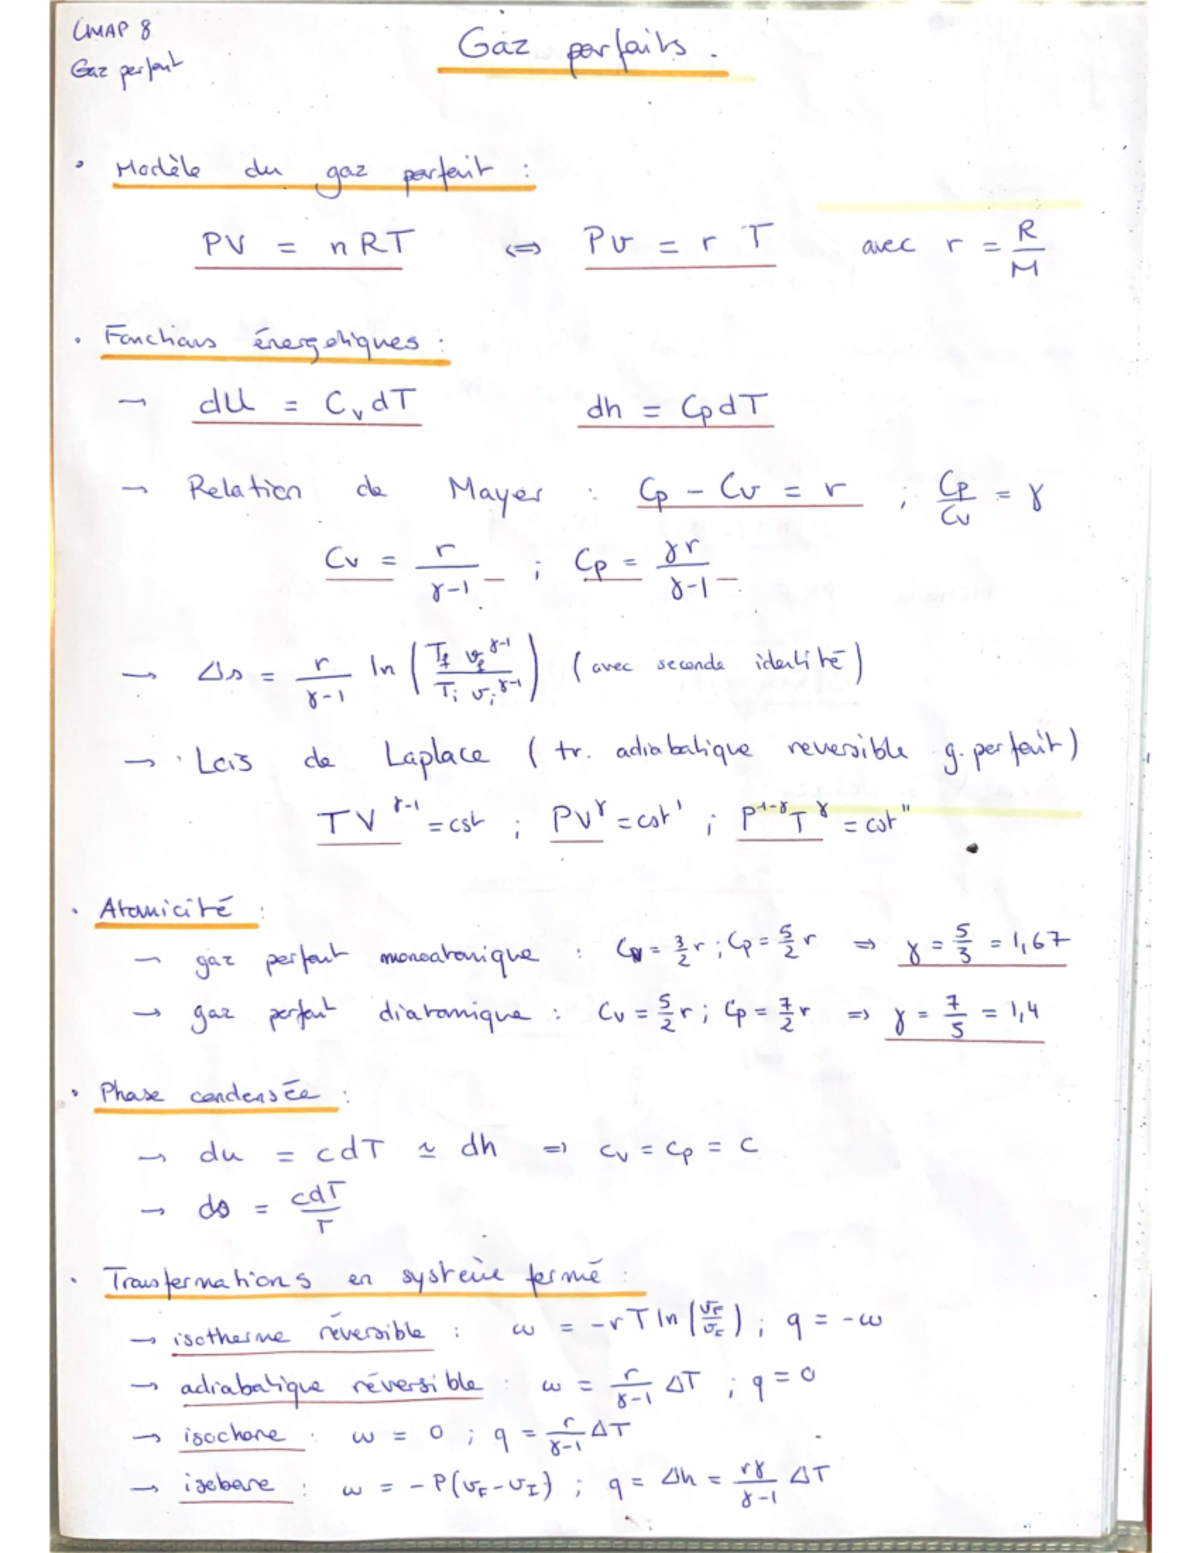 CMAP 8
Gaz parfait
Gaz parfaits.
• Modèle du gaz parfait :
PV = nRT ⇔ Pv = r T avec r = R/M
• Fonctions énergétiques :
→ dU = Cv dT dh = Cp dT
→ Relation de Mayer : Cp - Cv = r ; Cp/Cv = γ
Cv = r/(γ-1) ; Cp = γr/(γ-1)
→ Δs = r/(γ-1) ln (Tf vf^(γ-1) / Ti vi^(γ-1)) (avec seconde identité)
→ Lois de Laplace (tr. adiabatique reversible g. parfait)
TV^(γ-1) = cst ; PV^γ = cst' ; P^(1-γ) T^γ = cst"
• Atomicité :
→ gaz parfait monoatomique : Cv = 3/2 r ; Cp = 5/2 r ⇒ γ = 5/3 = 1,67
→ gaz parfait diatomique : Cv = 5/2 r ; Cp = 7/2 r ⇒ γ = 7/5 = 1,4
• Phase condensée :
→ du = cdT ≃ dh ⇒ cv = cp = c
→ ds = cdT/T
• Transformations en système fermé :
→ isotherme réversible : w = -rT ln (vF/) ; q = -w
→ adiabatique réversible : w = r/(γ-1) ΔT ; q = 0
→ isochore : w = 0 ; q = r/(γ-1) ΔT
→ isobare : w = -P(vF - vI) ; q = Δh = rγ/(γ-1) ΔT